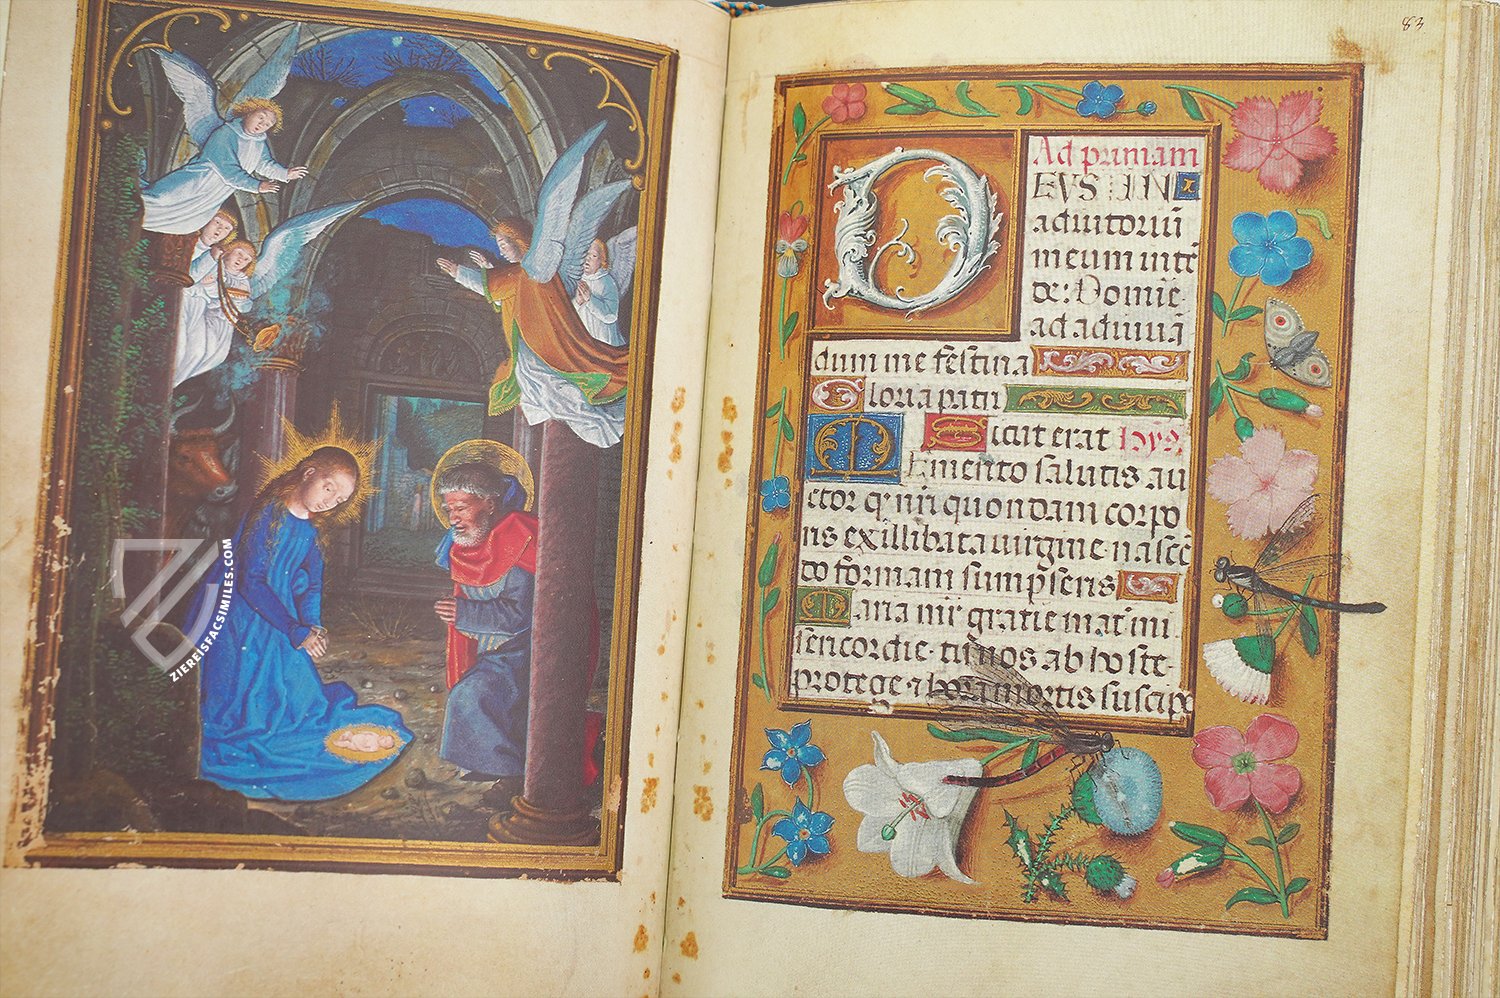 ZIEREISFACSIMILES.COM
83
Ad primam
EVS IN
adiutoriū
meum intē
de: Domine
ad adiuuā
dum me festina
Gloria patri
Sicut erat
Memento salutis au
ctor q nr̄i quondam corpo
ris ex illibata uirgine nascē
do formam sumpseris
Maria mr̄ gratie mat mi
sericordie tu nos ab hoste
protege & hora mortis suscipe